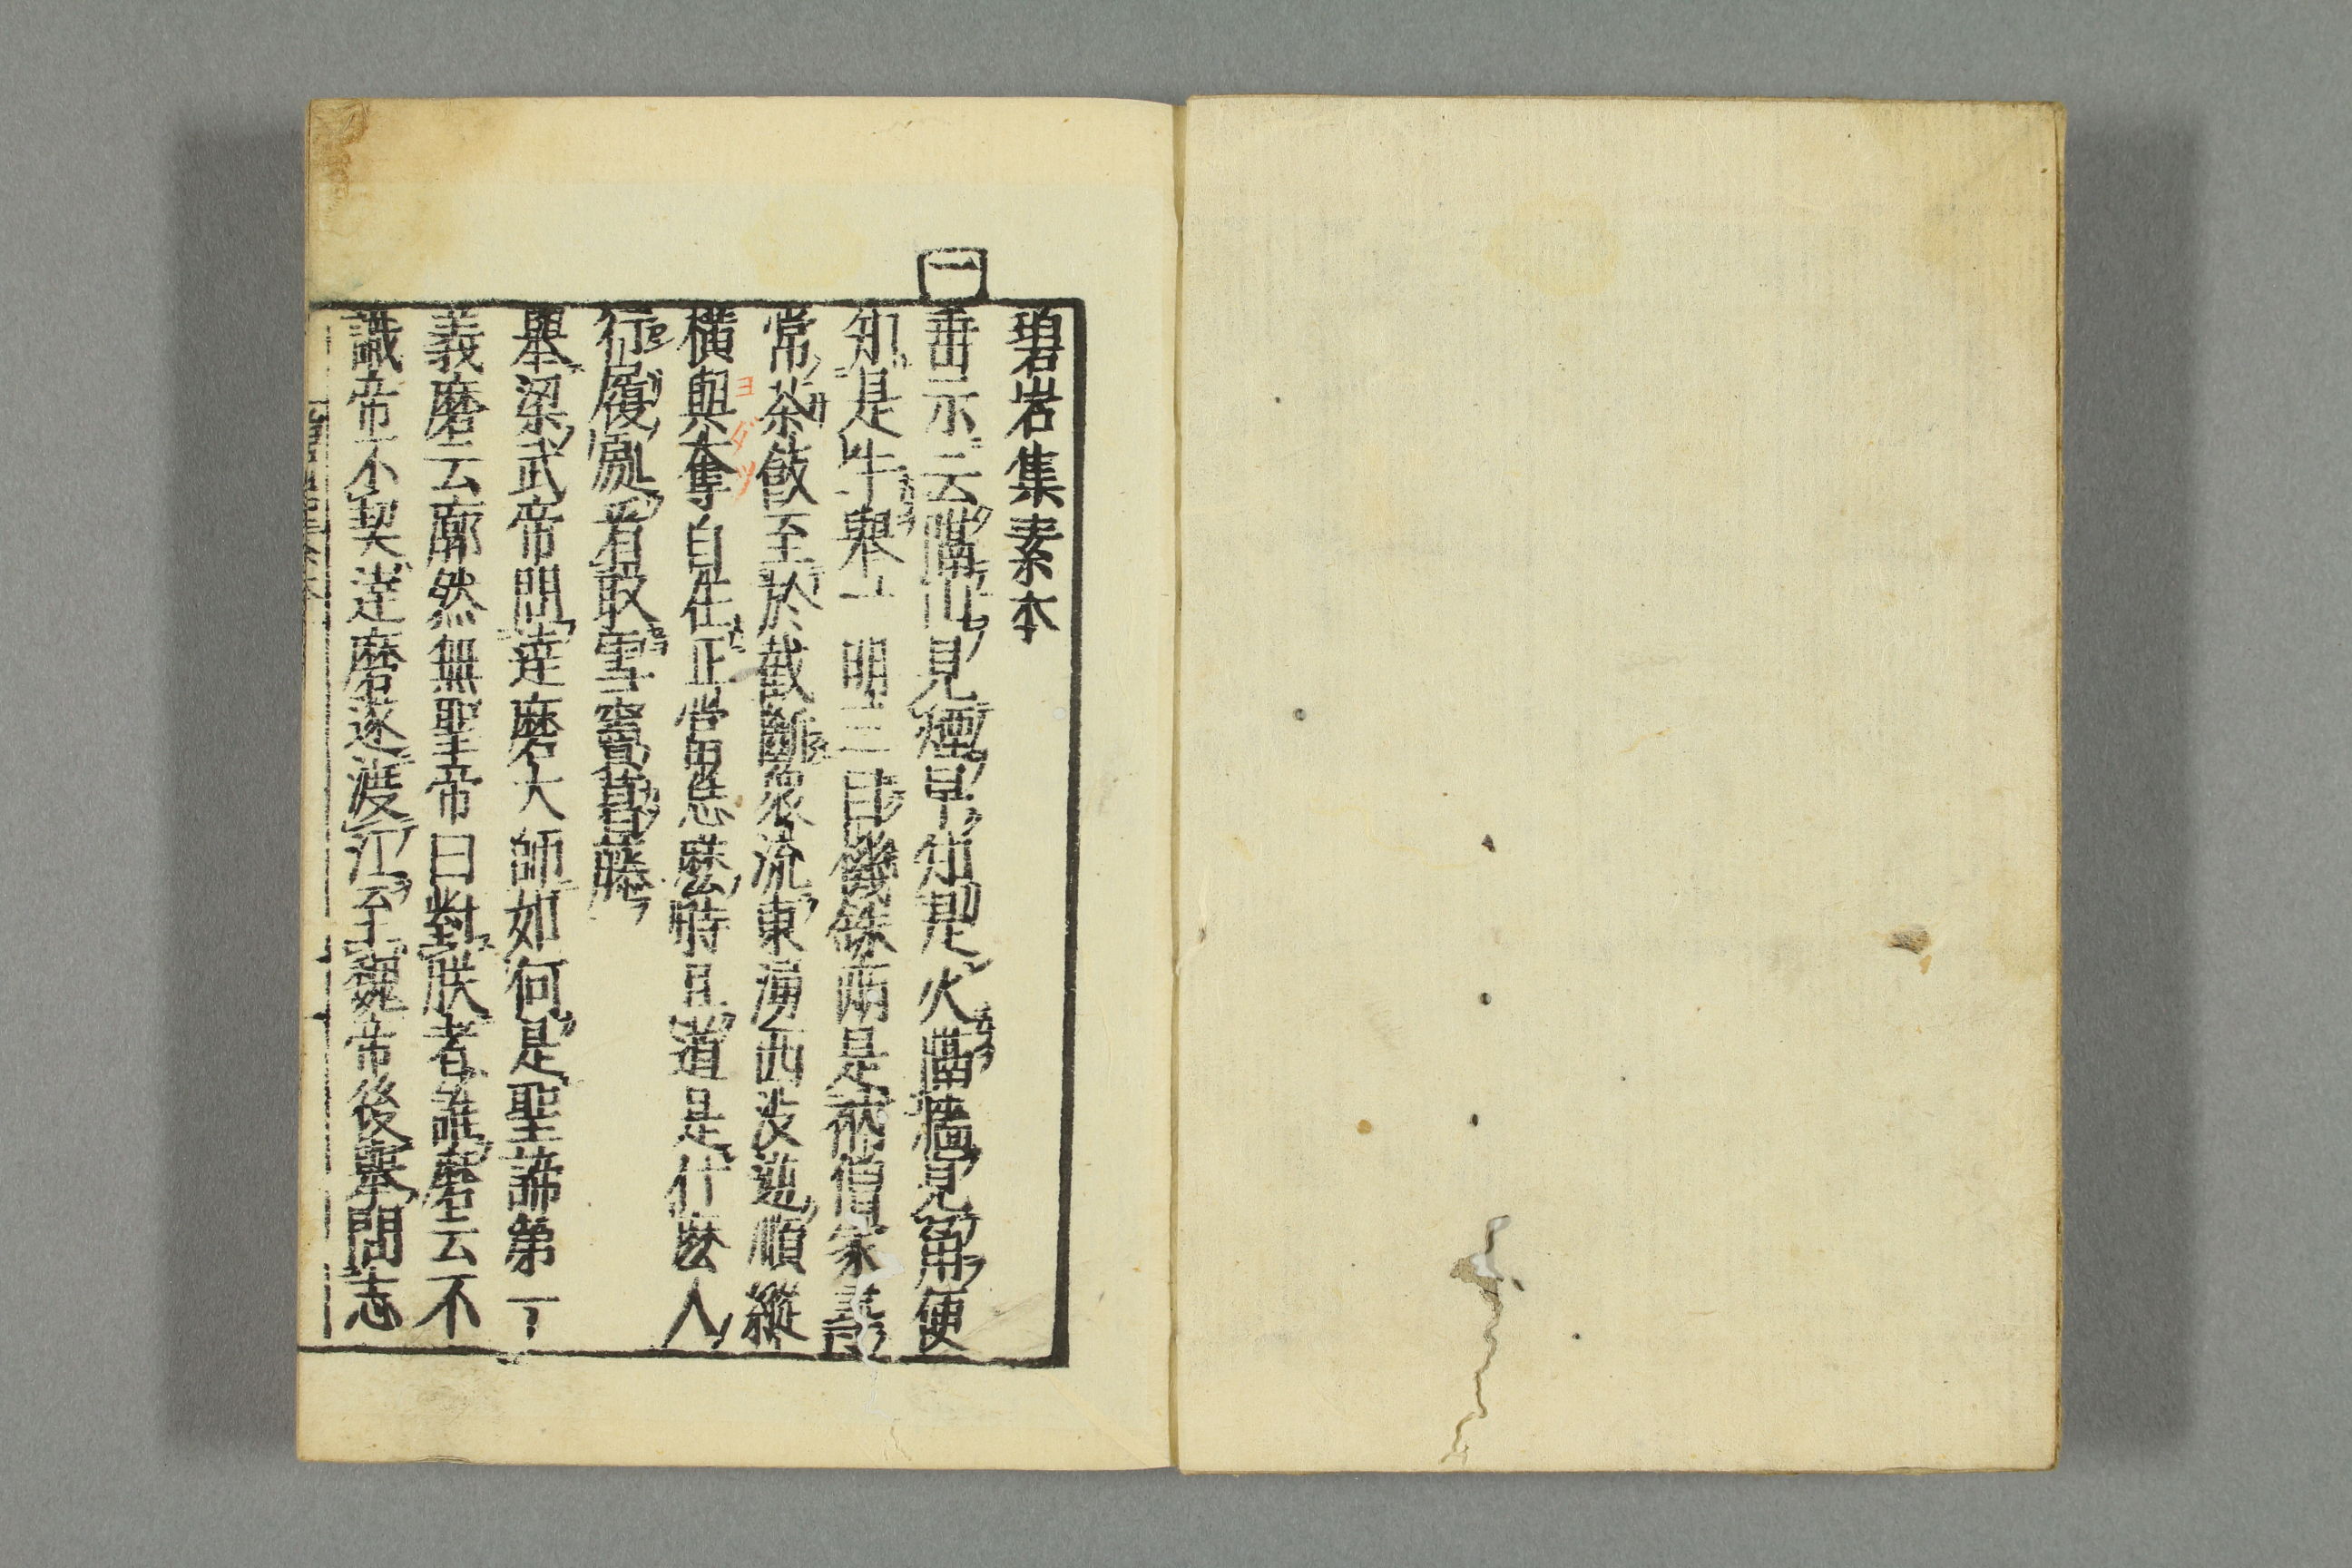 碧岩集素本
一
垂示云隔山見煙早知是火隔牆見角便
知是牛舉一明三目機銖兩是衲僧家尋
常茶飯至於截斷衆流東湧西没逆順縱
橫與奪自在正當恁麽時且道是什麽人
ヨダツ
行履處看取雪竇葛藤
舉梁武帝問達磨大師如何是聖諦第一
義磨云廓然無聖帝曰對朕者誰磨云不
識帝不契達磨遂渡江至魏帝後舉問志